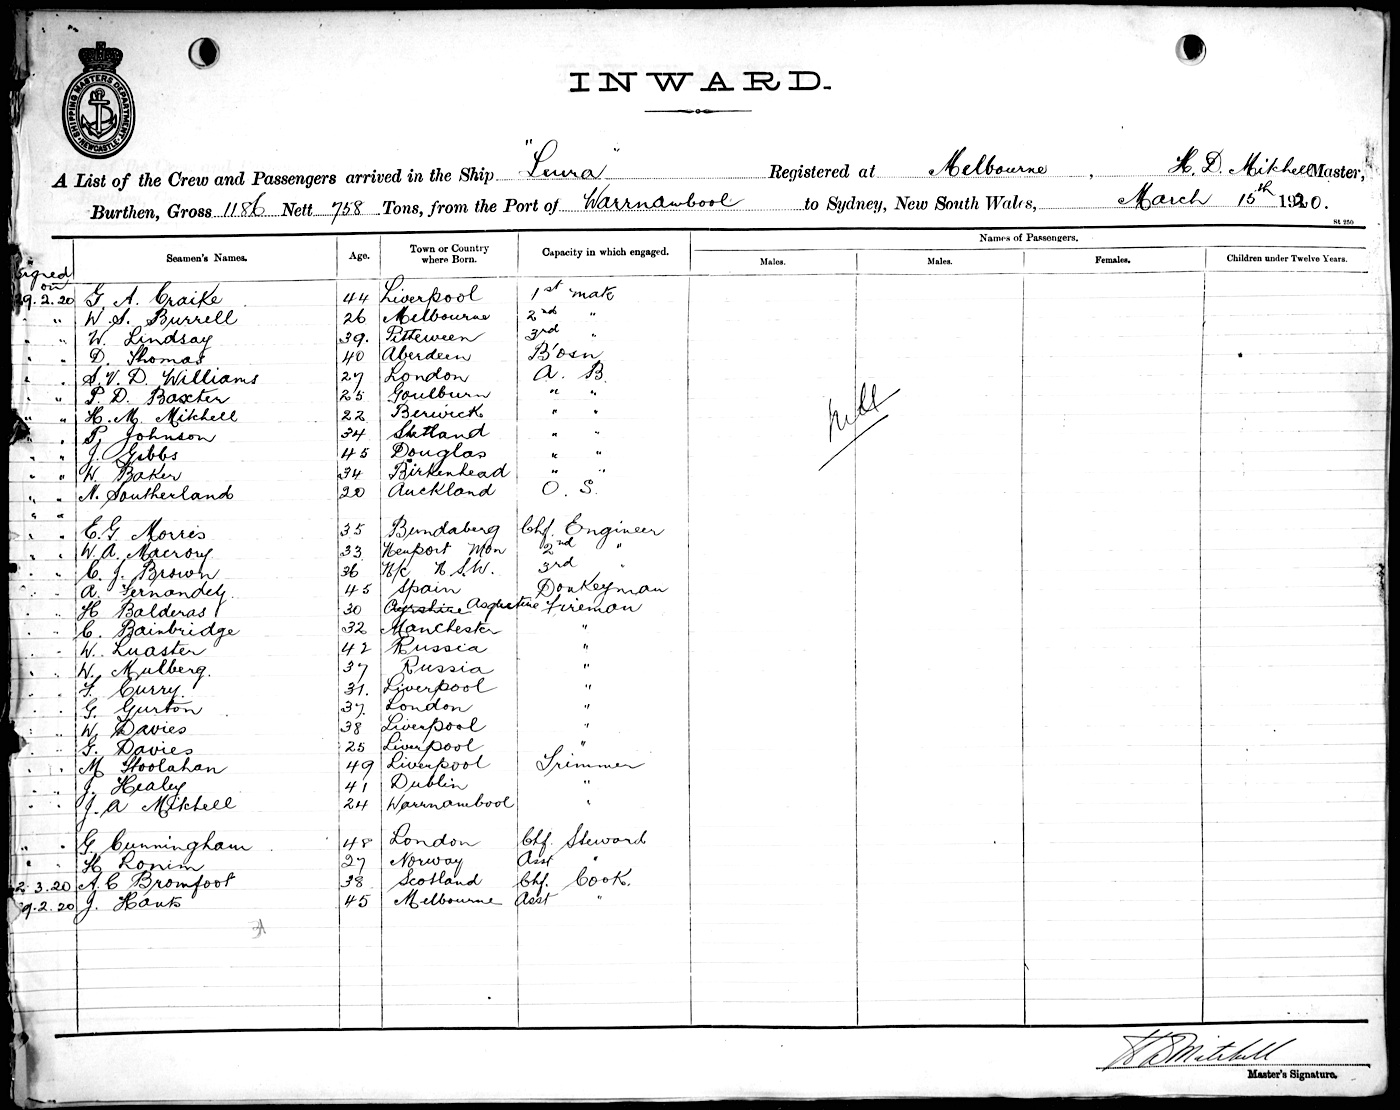 SHIPPING MASTERS DEPARTMENT NEWCASTLE
INWARD.
A List of the Crew and Passengers arrived in the Ship "Leura" Registered at Melbourne, H. D. Mitchell Master,
Burthen, Gross 1186 Nett 758 Tons, from the Port of Warrnambool to Sydney, New South Wales, March 15th 1920.
St. 250
Seamen's Names. Age. Town or Country where Born. Capacity in which engaged. Names of Passengers.
Males. Males. Females. Children under Twelve Years.
Signed on
29.2.20 G. A. Craike 44 Liverpool 1st mate
" " W. S. Burrell 26 Melbourne 2nd "
" " W. Lindsay 39. Pitteween 3rd "
" " D. Thomas 40 Aberdeen B'osn
" " S. V. D. Williams 27 London A. B.
" " P. D. Baxter 25 Goulburn " "
" " H. M. Mitchell 22 Berwick " "
" " P. Johnson 34 Shetland " "
" " J. Gibbs 45 Douglas " "
" " W. Baker 34 Birkenhead " "
" " N. Southerland 20 Auckland O. S.
" "
" " E. G. Morris 35 Bundaberg Chf. Engineer
" " W. A. Macrory 33 Newport Mon 2nd "
" " C. J. Brown 36 N/c N.S.W. 3rd "
" " A. Fernandez 45 Spain Donkeyman
" " H Balderas 30 Fireman
" " C. Bainbridge 32 Manchester "
" " W. Luaster 42 Russia "
" " W. Mulberg. 37 Russia "
" " F. Curry. 31. Liverpool "
" " G. Gurton 37. London "
" " W. Davies 38 Liverpool "
" " G. Davies 25 Liverpool "
" " M Hoolahan 49 Liverpool Trimmer
" " J. Healey 41 Dublin "
" " J. A Mitchell 24 Warrnambool "
" " G. Cunningham 48 London Chf. Steward
" " H Lonim 27 Norway Asst "
2.3.20 A. C Bromfoot 38 Scotland Chf. Cook.
29.2.20 J. Hanks 45 Melbourne Asst "
H D Mitchell
Master's Signature.